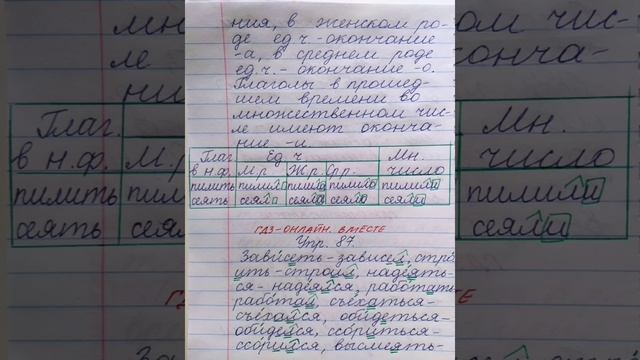 ния, в женском ро-
де ед.ч. - окончание
-а, в среднем роде
ед.ч. - окончание -о.
Глаголы в прошед-
шем времени во
множественном чис-
ле имеют оконча-
ние -и.
Глаг. Ед. ч Мн.
в н.ф. М.р Ж.р. Ср.р. число
пилить пилил пилила пилило пилили
сеять сеял сеяла сеяло сеяли
ГДЗ-ОНЛАЙН. ВМЕСТЕ
Упр. 87.
Зависеть-зависел, стро-
ить-строил, надеять-
ся-надеялся, работать-
работал, съехаться-
съехался, обидеться-
обиделся, ссориться-
ссорился, высмеять-